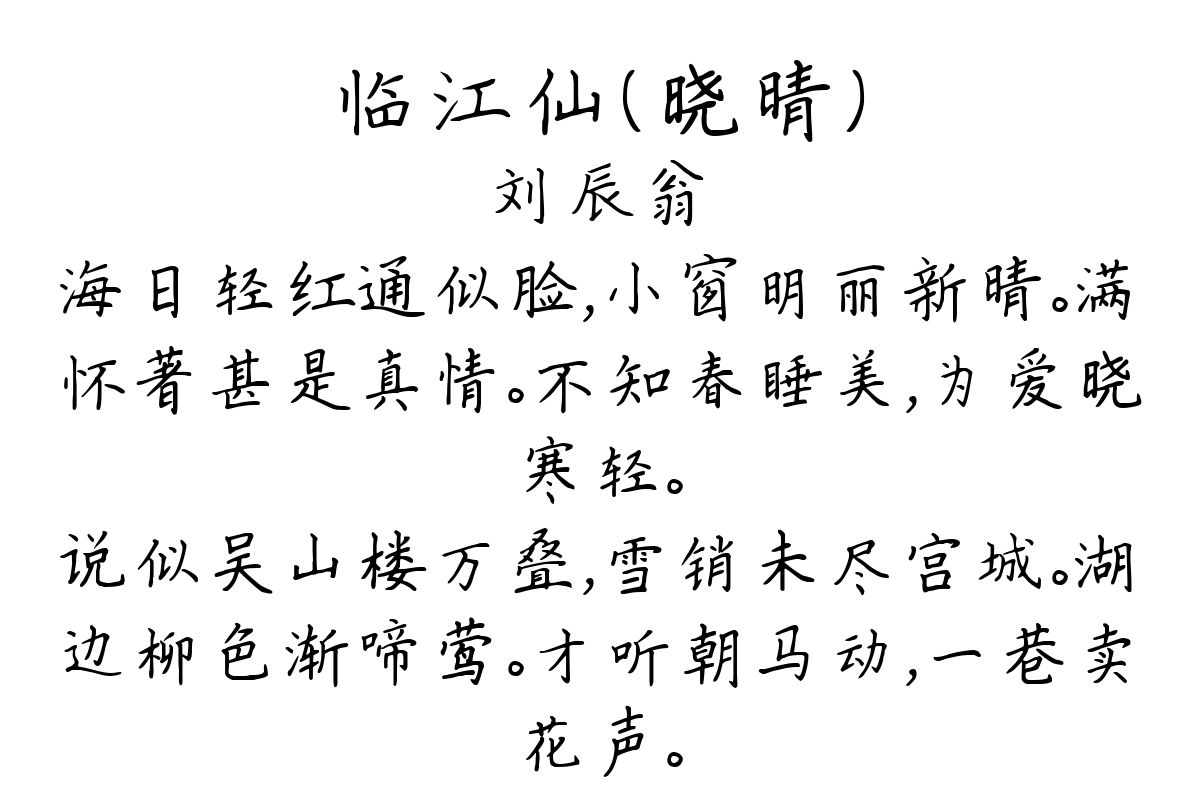 临江仙(晓晴)
刘辰翁
海日轻红通似脸,小窗明丽新晴。满
怀著甚是真情。不知春睡美,为爱晓
寒轻。
说似吴山楼万叠,雪销未尽宫城。湖
边柳色渐啼莺。才听朝马动,一巷卖
花声。